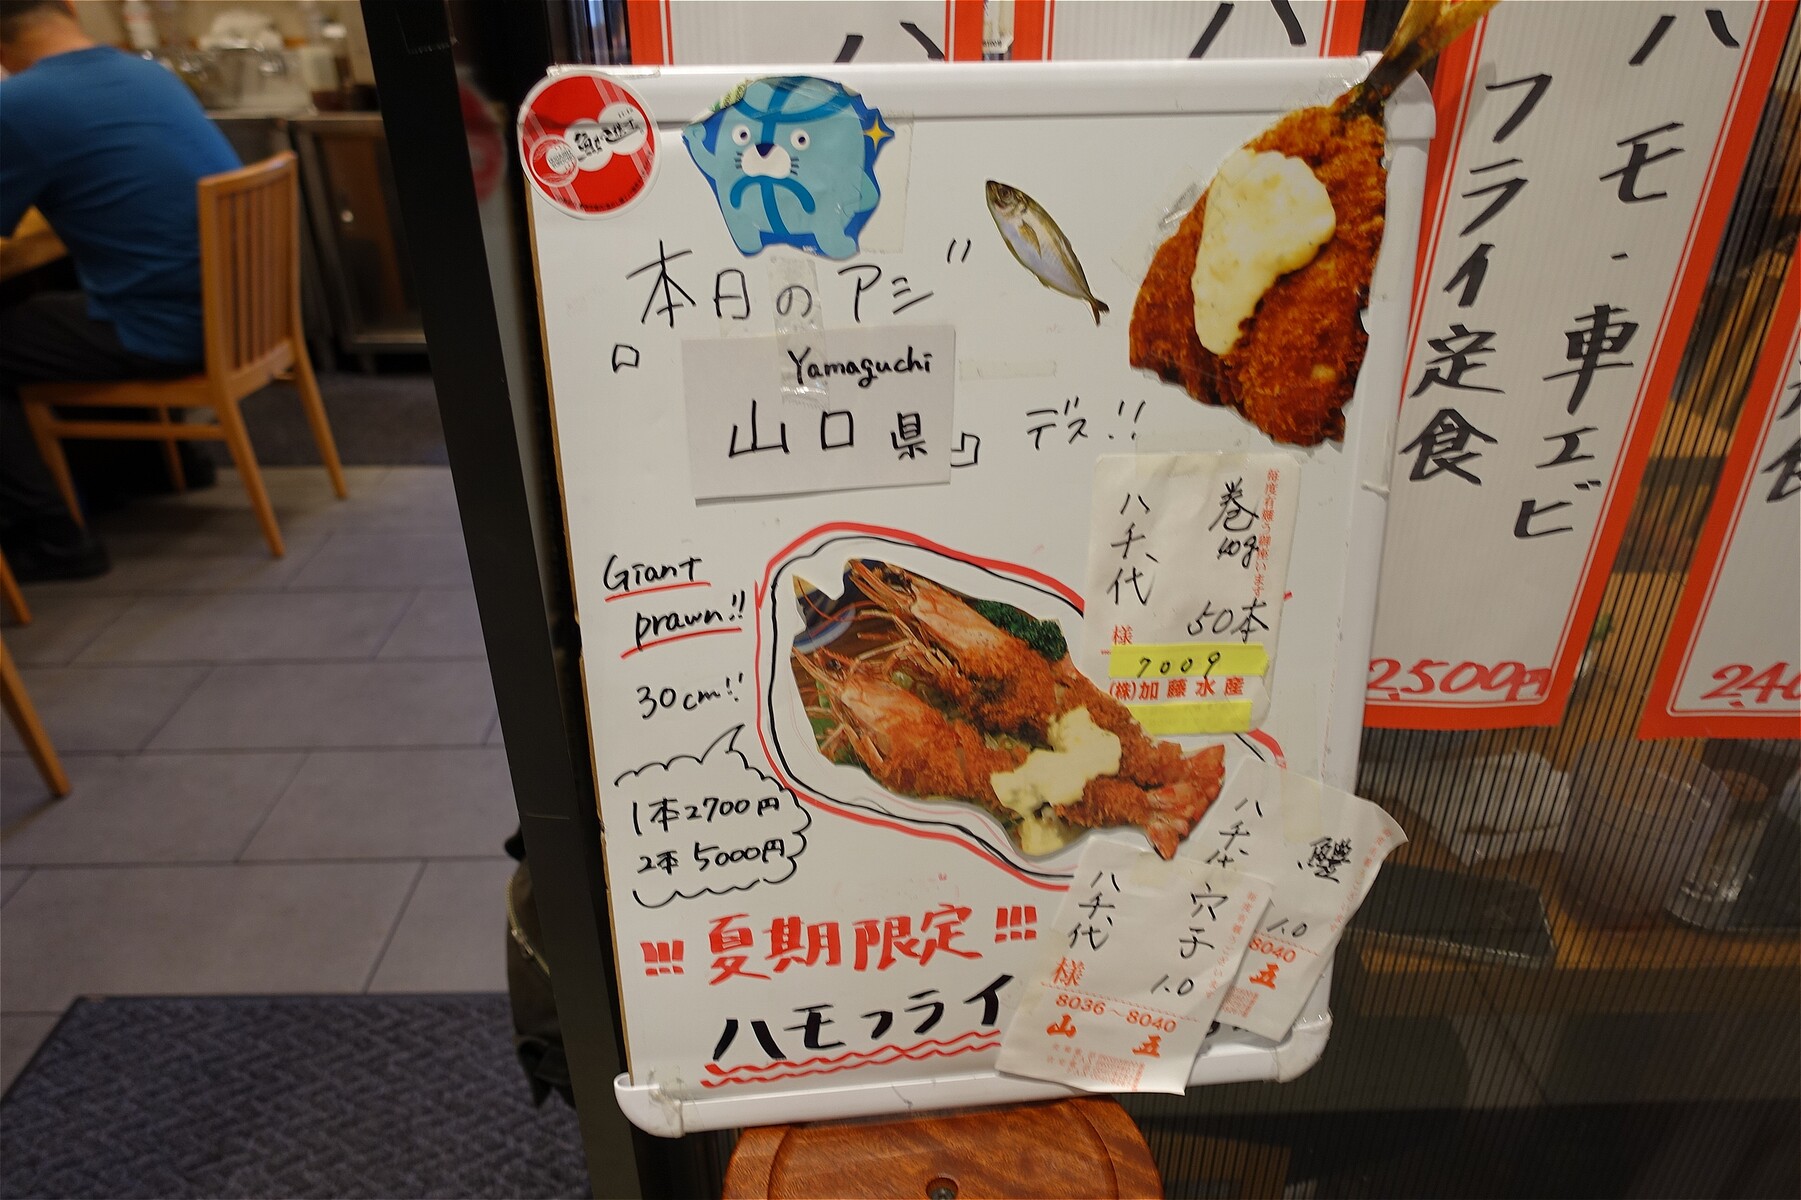 本日のアジ
Yamaguchi
山口県
デス!!
Giant
prawn!!
30cm!!
1本2700円
2本5000円
!!!夏期限定!!!
ハモフライ
毎度有難う御座います
巻
40g
50本
八千代
様
7009
(株)加藤水産
八千代
1.0
8040
五
穴子
1.0
八千代
様
8036~8040
山五
ハモ・車エビ
フライ定食
2,500円